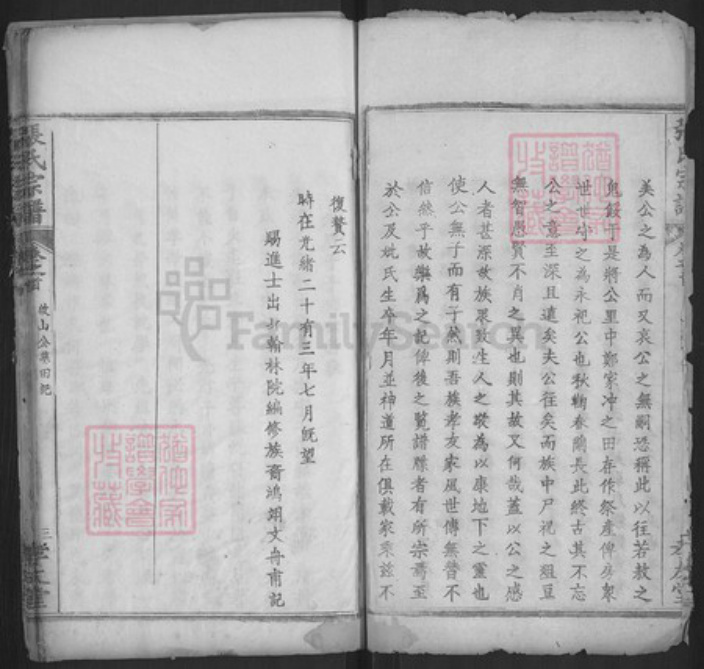 美公之為人而又哀公之無嗣恐稱此以往若敖之
鬼餒于是將公里中鄭家冲之田存作祭產俾房眾
世世守之為永祀公也秋蘜春蘭長此終古其不忘
公之意至深且遠矣夫公往矣而族中尸祝之俎豆
無智愚賢不肖之異也則其故又何哉蓋以公之感
人者甚深故族眾致生人之敬為以康地下之靈也
使公無子而有子然則吾族孝友家風世傳無替不
信然乎故樂為之記俾後之覽譜牒者有所宗焉至
於公及姚氏生卒年月並神道所在俱載家乘茲不
復贅云
時在光緒二十有三年七月既望
賜進士出身翰林院編修族裔鴻翊文舟甫記
張氏宗譜
卷之首
山公祭田記
三
孝友堂
張氏宗譜
孝友堂
FamilySearch